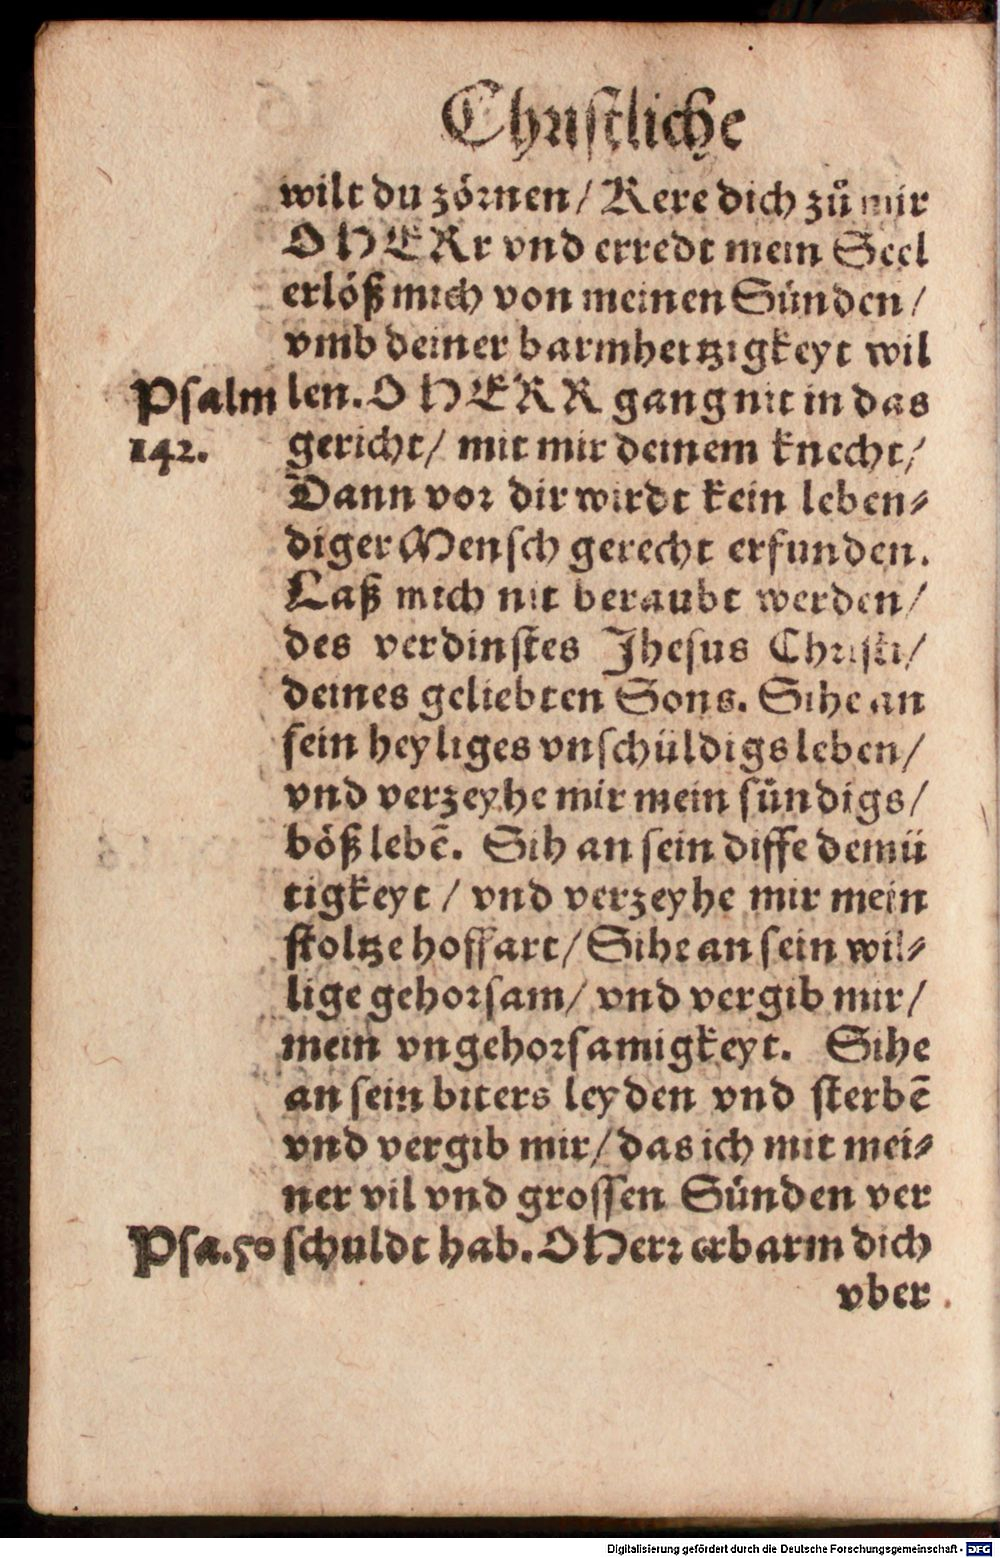 Christliche
wilt du zörnen / Kere dich zů mir
O HERr vnd erredt mein Seel
erlöß mich von meinen Sünden /
vmb deiner barmhertzigkeyt wil
Psalm len. O HERR gang nit in das
142. gericht / mit mir deinem knecht /
Dann vor dir wirdt kein leben⸗
diger Mensch gerecht erfunden.
Laß mich nit beraubt werden /
des verdinstes Jhesus Christi /
deines geliebten Sons. Sihe an
sein heyliges vnschüldigs leben /
vnd verzeyhe mir mein sündigs /
böß lebē. Sih an sein diffe demü
tigkeyt / vnd verzeyhe mir mein
stoltze hoffart / Sihe an sein wil⸗
lige gehorsam / vnd vergib mir /
mein vngehorsamigkeyt. Sihe
an sein biters leyden vnd sterbē
vnd vergib mir / das ich mit mei⸗
ner vil vnd grossen Sünden ver
Psa. 50 schuldt hab. O Herr erbarm dich
vber
Digitalisierung gefördert durch die Deutsche Forschungsgemeinschaft - DFG